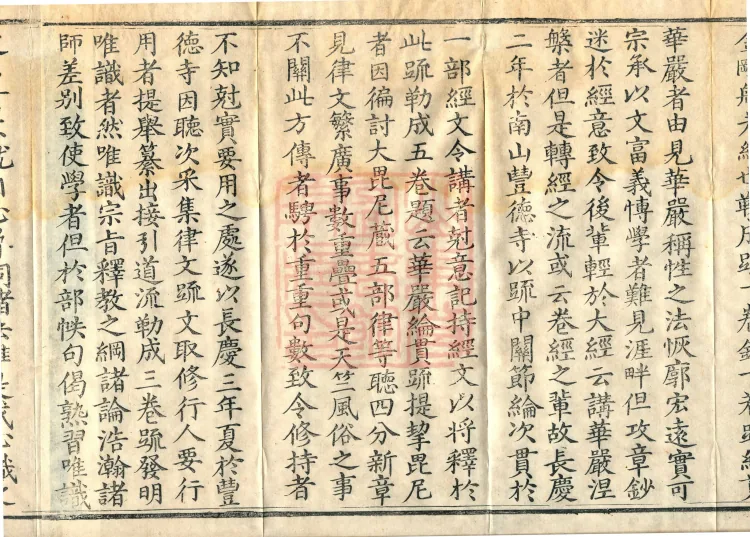 華嚴者由見華嚴稱性之法恢廓宏遠實可
宗承以文富義愽學者難見涯畔但攻章鈔
迷於經意致令後軰輕於大經云講華嚴涅
槃者但是轉經之流或云卷經之軰故長慶
二年於南山豐德寺以䟽中關節綸次貫於
一部經文令講者尅意記持經文以將釋於
此䟽勒成五卷題云華嚴綸貫䟽提挈毘尼
者因徧討大毘尼蔵五部律等聽四分新章
見律文繁廣事數重疊或是天竺風俗之事
不關此方傳者騁於重重句數致令修持者
不知尅實要用之處遂以長慶三年夏於豐
德寺因聽次采集律文䟽文取修行人要行
用者提舉纂出接引道流勒成三卷䟽發明
唯識者然唯識宗旨釋教之綱諸論浩瀚諸
師差别致使學者但於部帙句偈熟習唯識